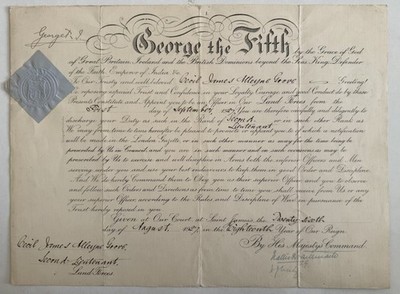 George R. I.
George the Fifth by the Grace of God
of Great Britain Ireland and the British Dominions beyond the Seas King, Defender
of the Faith, Emperor of India, &c. To
Our Trusty and well beloved Cecil James Alleyne Greeting!
We reposing especial Trust and Confidence in your Loyalty, Courage, and good Conduct, do by these
Presents Constitute and Appoint you to be an Officer in Our Land Forces from the
First day of September 1927. You are therefore carefully and diligently to
discharge your Duty as such in the Rank of Second Lieutenant or in such other Rank as
We may from time to time hereafter be pleased to promote or appoint you to of which a notification
will be made in the London Gazette, or in such other manner as may for the time being be
prescribed by Us in Council and you are in such manner and on such occasions as may be
prescribed by Us to exercise and well discipline in Arms both the inferior Officers and Men
serving under you and use your best endeavours to keep them in good Order and Discipline.
And We do hereby Command them to Obey you as their superior Officer and you to observe
and follow such Orders and Directions as from time to time you shall receive from Us or any
your superior Officer according to the Rules and Discipline of War in pursuance of the
Trust hereby reposed in you.
Given at Our Court at Saint James's the
day of August 1927 in the Eighteenth Year of Our Reign
By His Majesty's Command.
Cecil James Alleyne
Second Lieutenant
Land Forces